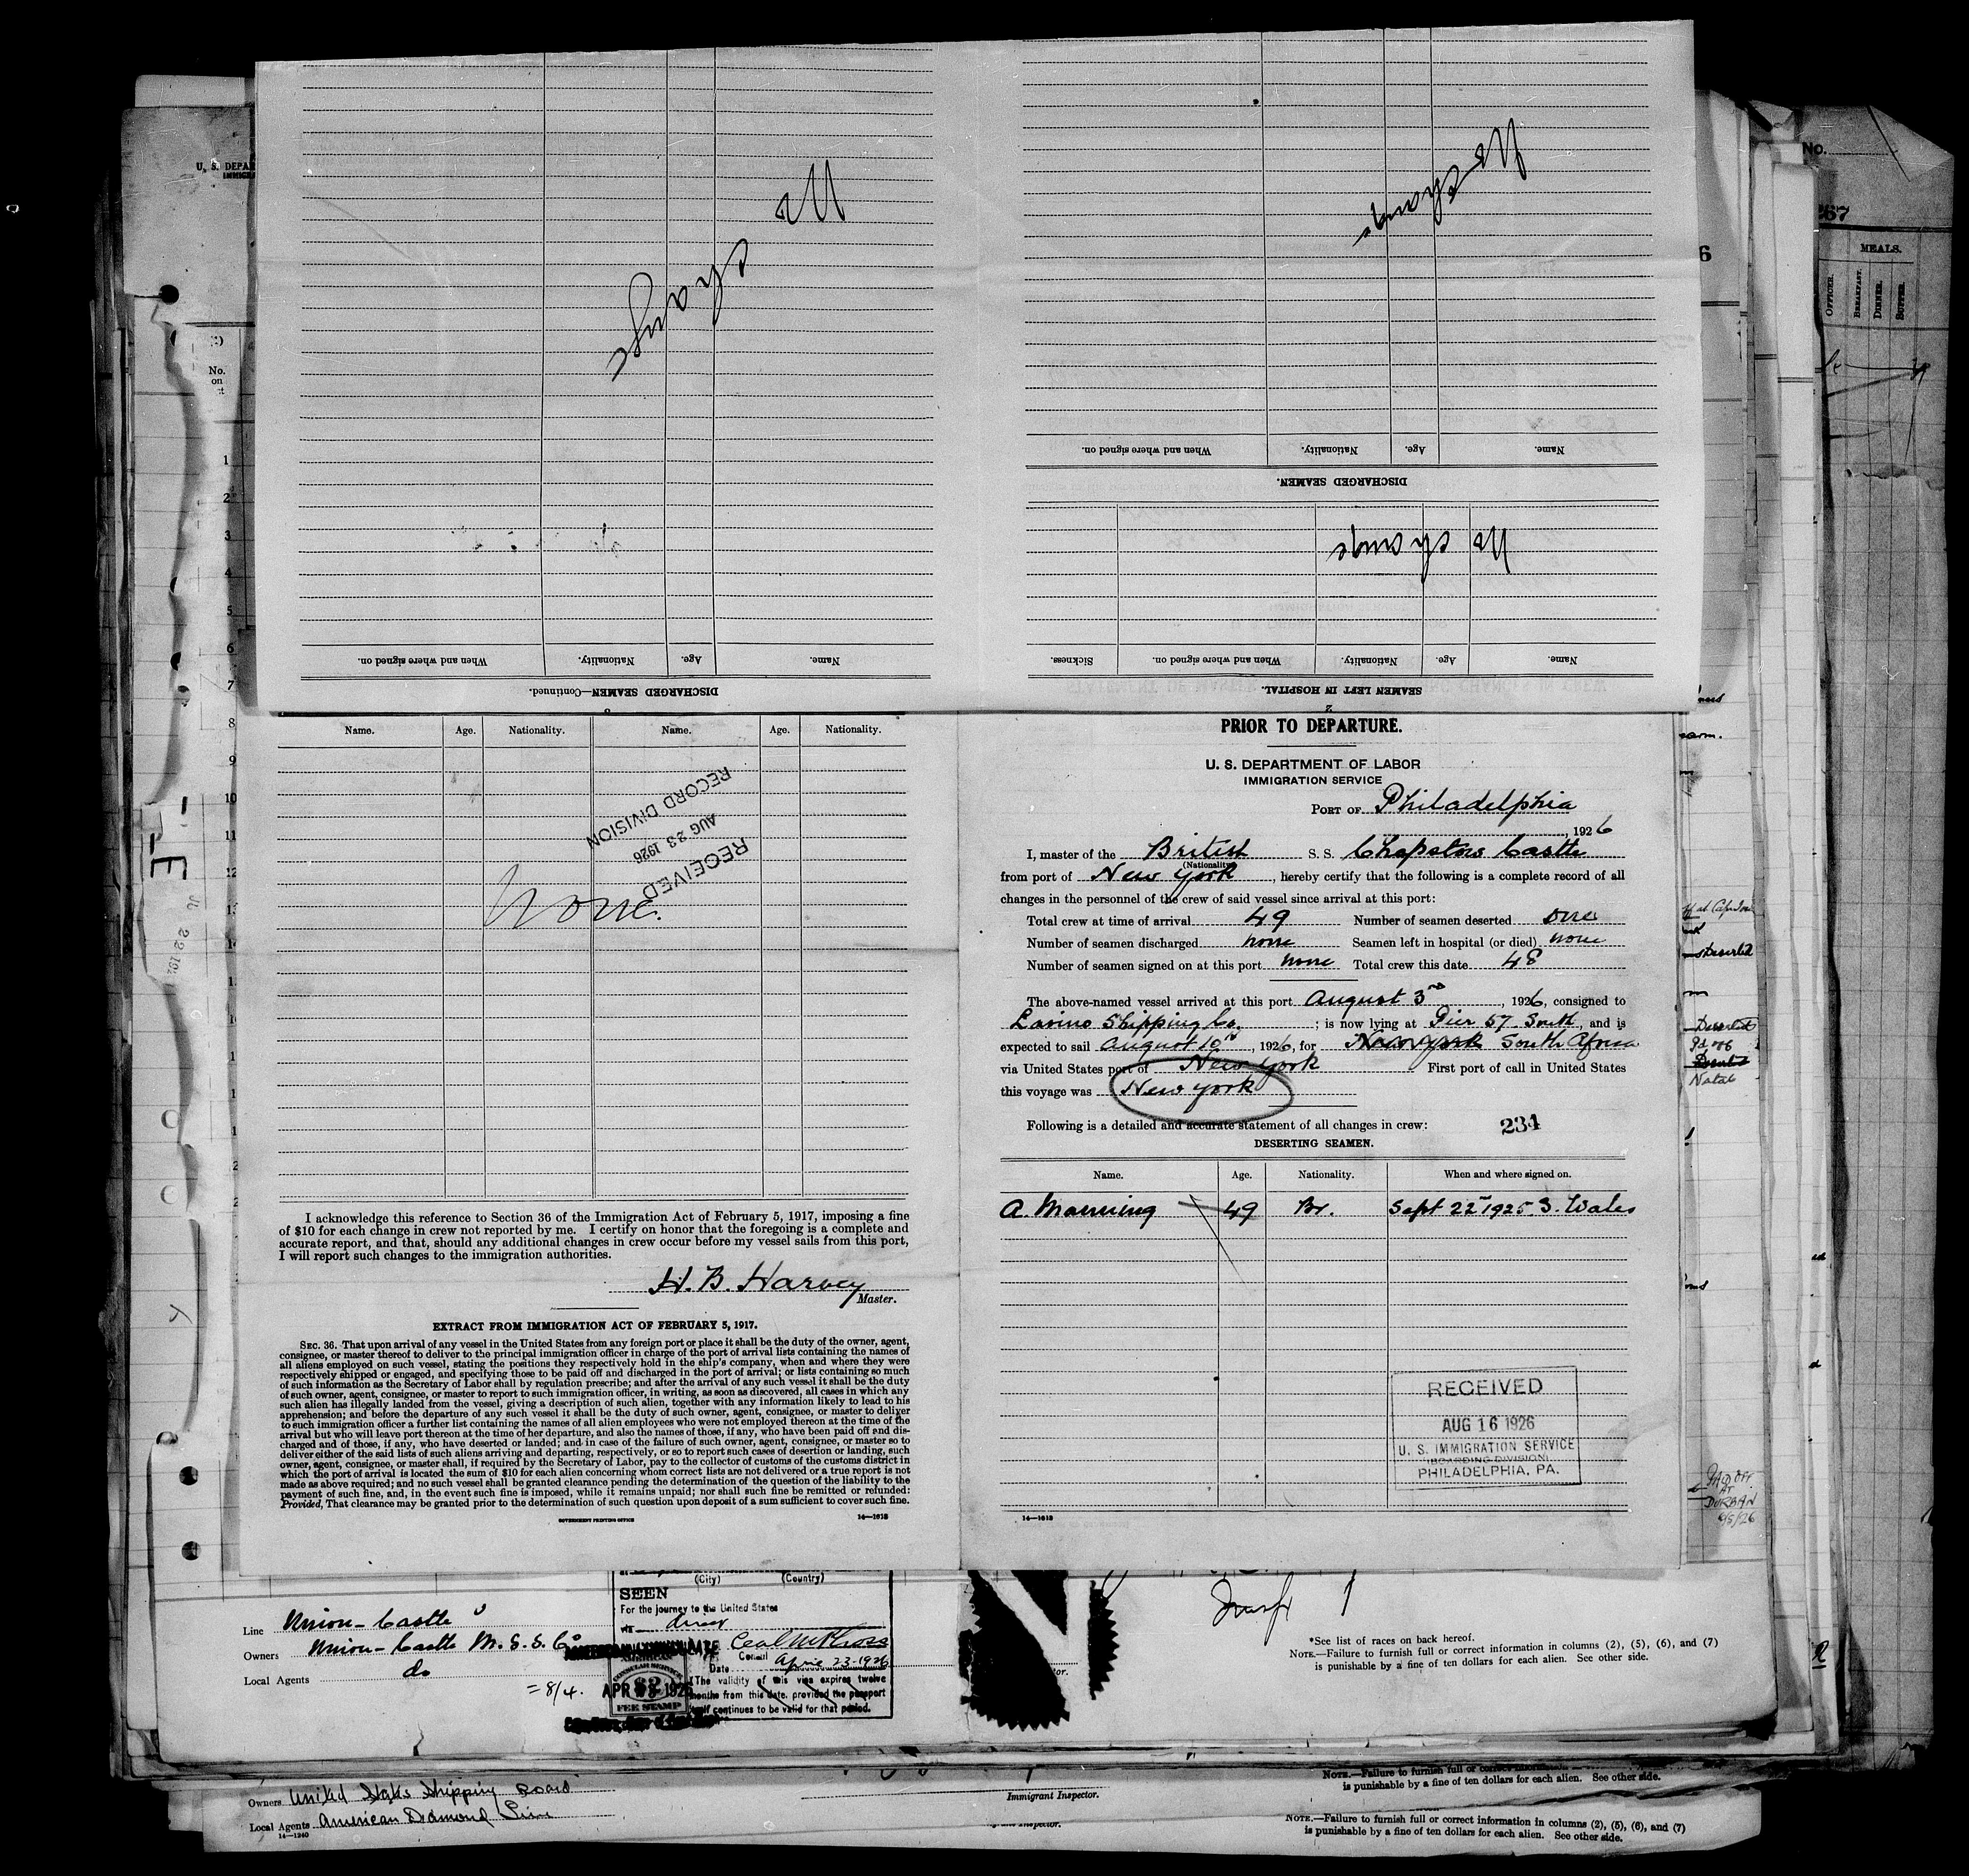 U. S. DEPAR
IMMIGRA
No.
267
MEALS.
OFFICER.
BREAKFAST.
DINNER.
SUPPER.
6
No.
on
1
2
3
4
5
6
7
8
9
10
11
12
No change
No change
When and where signed on.
Nationality.
Age.
Name.
DISCHARGED SEAMEN.
No change
Sickness.
When and where signed on.
Nationality.
Age.
Name.
SEAMEN LEFT IN HOSPITAL.
2
When and where signed on.
Nationality.
Age.
Name.
DISCHARGED SEAMEN—Continued.
Name. Age. Nationality. Name. Age. Nationality.
RECEIVED
AUG 23 1926
RECORD DIVISION
None.
I acknowledge this reference to Section 36 of the Immigration Act of February 5, 1917, imposing a fine
of $10 for each change in crew not reported by me. I certify on honor that the foregoing is a complete and
accurate report, and that, should any additional changes in crew occur before my vessel sails from this port,
I will report such changes to the immigration authorities.
H. B. Harvey
Master.
EXTRACT FROM IMMIGRATION ACT OF FEBRUARY 5, 1917.
SEC. 36. That upon arrival of any vessel in the United States from any foreign port or place it shall be the duty of the owner, agent,
consignee, or master thereof to deliver to the principal immigration officer in charge of the port of arrival lists containing the names of
all aliens employed on such vessel, stating the positions they respectively hold in the ship's company, when and where they were
respectively shipped or engaged, and specifying those to be paid off and discharged in the port of arrival; or lists containing so much
of such information as the Secretary of Labor shall by regulation prescribe; and after the arrival of any such vessel it shall be the duty
of such owner, agent, consignee, or master to report to such immigration officer, in writing, as soon as discovered, all cases in which any
such alien has illegally landed from the vessel, giving a description of such alien, together with any information likely to lead to his
apprehension; and before the departure of any such vessel it shall be the duty of such owner, agent, consignee, or master to deliver
to such immigration officer a further list containing the names of all alien employees who were not employed thereon at the time of the
arrival but who will leave port thereon at the time of her departure, and also the names of those, if any, who have been paid off and dis-
charged and of those, if any, who have deserted or landed; and in case of the failure of such owner, agent, consignee, or master so to
deliver either of the said lists of such aliens arriving and departing, respectively, or so to report such cases of desertion or landing, such
owner, agent, consignee, or master shall, if required by the Secretary of Labor, pay to the collector of customs of the customs district in
which the port of arrival is located the sum of $10 for each alien concerning whom correct lists are not delivered or a true report is not
made as above required; and no such vessel shall be granted clearance pending the determination of the question of the liability to the
payment of such fine, and, in the event such fine is imposed, while it remains unpaid; nor shall such fine be remitted or refunded:
Provided, That clearance may be granted prior to the determination of such question upon deposit of a sum sufficient to cover such fine.
GOVERNMENT PRINTING OFFICE 14—1613
PRIOR TO DEPARTURE.
U. S. DEPARTMENT OF LABOR
IMMIGRATION SERVICE
PORT OF Philadelphia
, 1926
I, master of the British S. S. Chapstow Castle
(Nationality)
from port of New York, hereby certify that the following is a complete record of all
changes in the personnel of the crew of said vessel since arrival at this port:
Total crew at time of arrival 49 Number of seamen deserted one
Number of seamen discharged none Seamen left in hospital (or died) none
Number of seamen signed on at this port none Total crew this date 48
The above-named vessel arrived at this port August 3rd, 1926, consigned to
Lavino Shipping Co. ; is now lying at Pier 57 South, and is
expected to sail August 10th, 1926, for New York South Africa
via United States port of New York First port of call in United States
this voyage was New York
Following is a detailed and accurate statement of all changes in crew: 234
DESERTING SEAMEN.
Name. Age. Nationality. When and where signed on.
A. Manning 49 Br. Sept 22 1925 S. Wales
RECEIVED
AUG 16 1926
U. S. IMMIGRATION SERVICE
(BOARDING DIVISION)
PHILADELPHIA, PA.
14—1613
Deserted
Deserted
Natal
PAID OFF
AT
DURBAN
(City) (Country)
SEEN
For the journey to the United States
Line Union-Castle
Owners Union-Castle M. S. S. Co
Local Agents do
=8/4.
Consul
Date April 23-1926
APR 1926
CONSULAR SERVICE
$2
FEE STAMP
The validity of this visa expires twelve
months from this date, provided the passport
itself continues to be valid for that period.
1
*See list of races on back hereof.
NOTE.—Failure to furnish full or correct information in columns (2), (5), (6), and (7)
is punishable by a fine of ten dollars for each alien. See other side.
Owners United States Shipping Board
Local Agents American Diamond Line
14—1240
Immigrant Inspector.
NOTE.—Failure to furnish full or correct information
is punishable by a fine of ten dollars for each alien. See other side.
NOTE.—Failure to furnish full or correct information in columns (2), (5), (6), and (7)
is punishable by a fine of ten dollars for each alien. See other side.